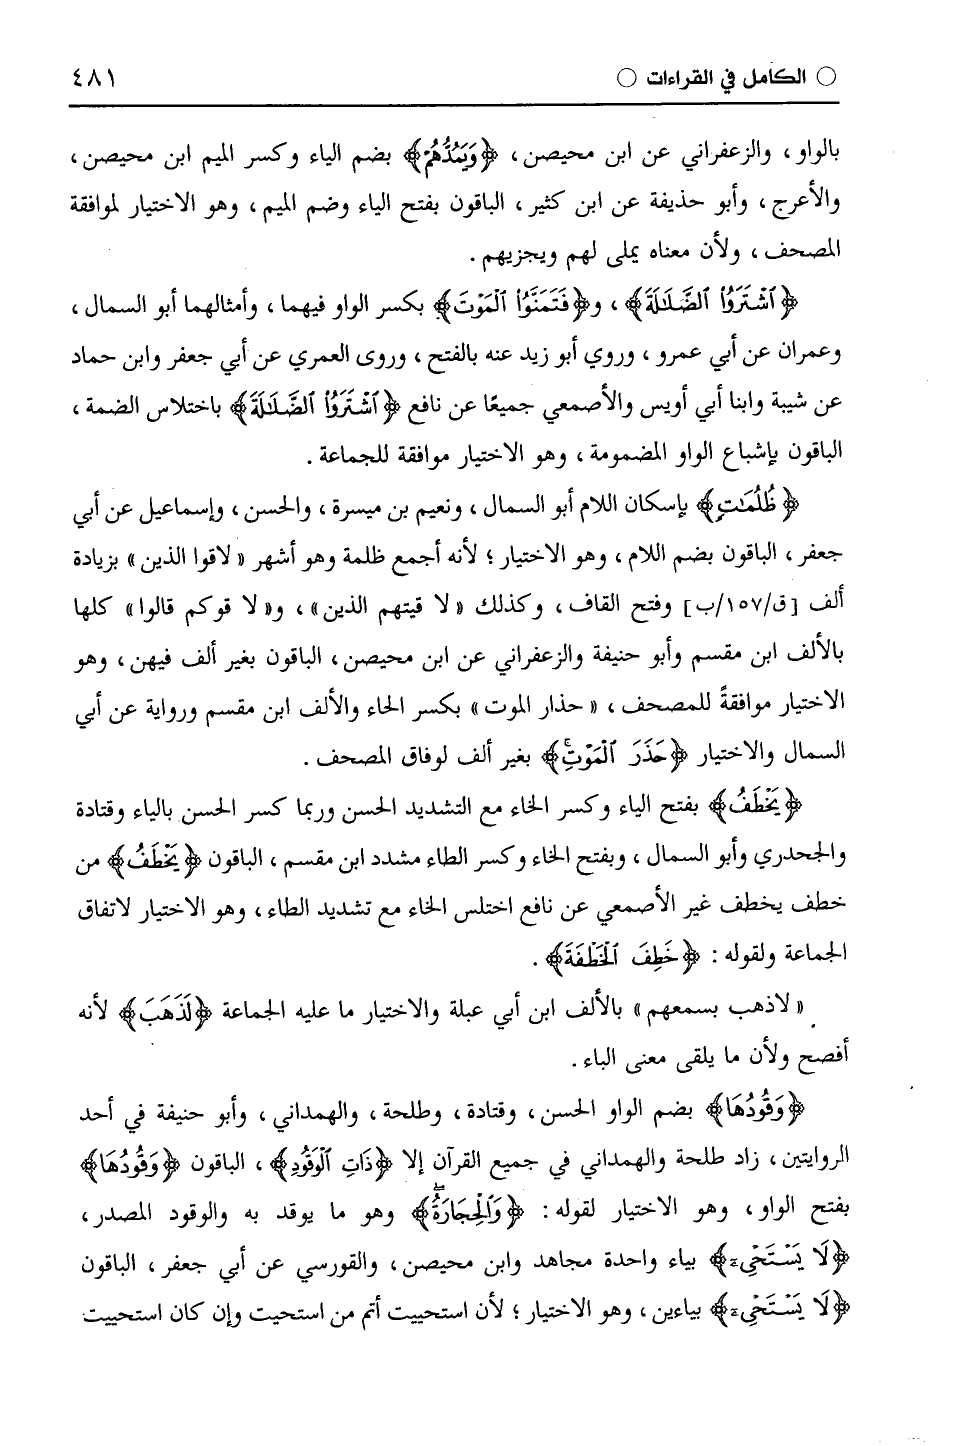 ○ الكامل في القراءات ○
٤٨١
بالواو ، والزعفراني عن ابن محيصن ، ﴿وَيَمُدُّهُمْ﴾ بضم الياء وكسر الميم ابن محيصن ،
والأعرج ، وأبو حذيفة عن ابن كثير ، الباقون بفتح الياء وضم الميم ، وهو الاختيار لموافقة
المصحف ، ولأن معناه يملى لهم ويجزيهم .
﴿ٱشْتَرَوُا۟ ٱلضَّلَـٰلَةَ﴾ ، و﴿فَتَمَنَّوُا۟ ٱلْمَوْتَ﴾ بكسر الواو فيهما ، وأمثالهما أبو السمال ،
وعمران عن أبي عمرو ، وروي أبو زيد عنه بالفتح ، وروى العمري عن أبي جعفر وابن حماد
عن شيبة وابنا أبي أويس والأصمعي جميعًا عن نافع ﴿ٱشْتَرَوُا۟ ٱلضَّلَـٰلَةَ﴾ باختلاس الضمة ،
الباقون بإشباع الواو المضمومة ، وهو الاختيار موافقة للجماعة .
﴿ظُلُمَـٰتٍ﴾ بإسكان اللام أبو السمال ، ونعيم بن ميسرة ، والحسن ، وإسماعيل عن أبي
جعفر ، الباقون بضم اللام ، وهو الاختيار ؛ لأنه أجمع ظلمة وهو أشهر « لاقوا الذين » بزيادة
ألف [ق/١٥٧/ب] وفتح القاف ، وكذلك « لا قيتهم الذين» ، و« لا قوكم قالوا» كلها
بالألف ابن مقسم وأبو حنيفة والزعفراني عن ابن محيصن ، الباقون بغير ألف فيهن ، وهو
الاختيار موافقةً للمصحف ، « حذار الموت » بكسر الحاء والألف ابن مقسم ورواية عن أبي
السمال والاختيار ﴿حَذَرَ ٱلْمَوْتِ ۚ﴾ بغير ألف لوفاق المصحف .
﴿يَخْطَفُ﴾ بفتح الياء وكسر الخاء مع التشديد الحسن وربما كسر الحسن بالياء وقتادة
والجحدري وأبو السمال ، وبفتح الخاء وكسر الطاء مشدد ابن مقسم ، الباقون ﴿يَخْطَفُ﴾ من
خطف يخطف غير الأصمعي عن نافع اختلس الخاء مع تشديد الطاء ، وهو الاختيار لاتفاق
الجماعة ولقوله : ﴿خَطِفَ ٱلْخَطْفَةَ﴾ .
« لاذهب بسمعهم » بالألف ابن أبي عبلة والاختيار ما عليه الجماعة ﴿لَذَهَبَ﴾ لأنه
أفصح ولأن ما يلقى معنى الباء .
﴿وَقُودُهَا﴾ بضم الواو الحسن ، وقتادة ، وطلحة ، والهمداني ، وأبو حنيفة في أحد
الروايتين ، زاد طلحة والهمداني في جميع القرآن إلا ﴿ذَاتِ ٱلْوَقُودِ﴾ ، الباقون ﴿وَقُودُهَا﴾
بفتح الواو ، وهو الاختيار لقوله : ﴿وَٱلْحِجَارَةُ ۖ﴾ وهو ما يوقد به والوقود المصدر ،
﴿لَا يَسْتَحْىِۦ﴾ بياء واحدة مجاهد وابن محيصن ، والقورسي عن أبي جعفر ، الباقون
﴿لَا يَسْتَحْىِۦ﴾ بياءين ، وهو الاختيار ؛ لأن استحييت أتم من استحيت وإن كان استحييت